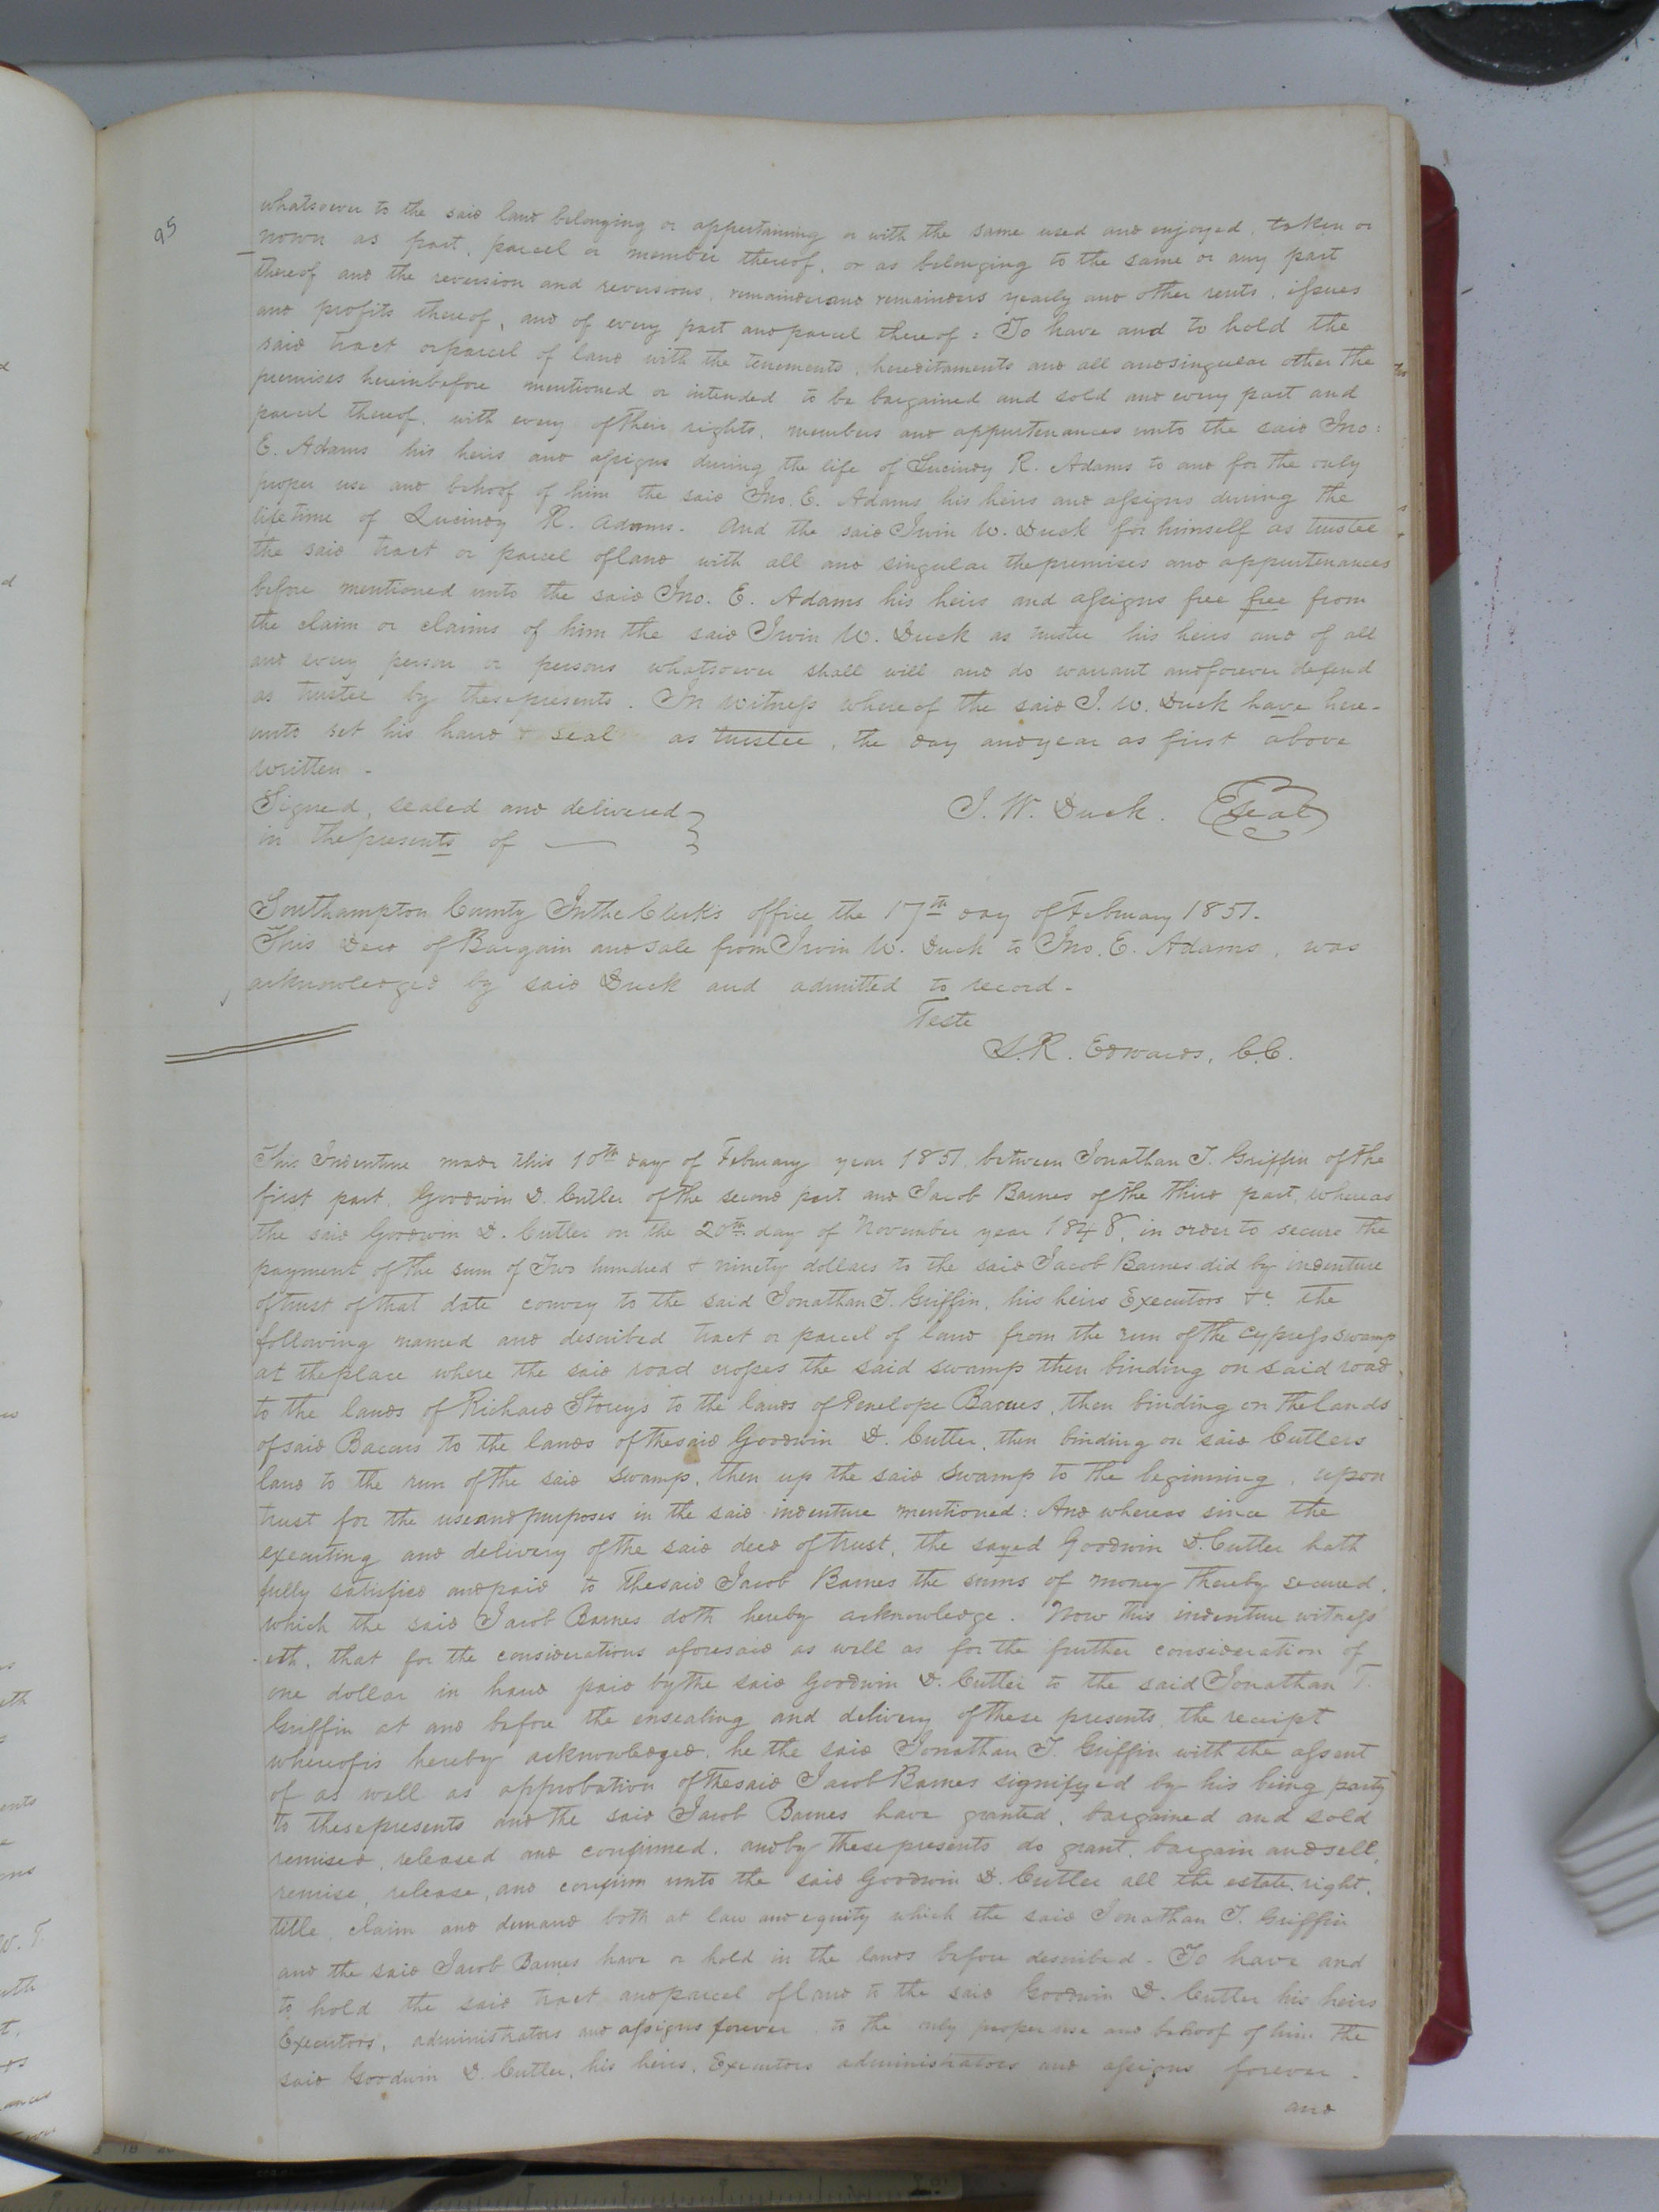 95
whatsoever to the said land belonging or appertaining or with the same used and enjoyed, taken or
nown as part, parcel or member thereof, or as belonging to the same or any part
thereof and the reversion and reversions, remainder and remainders yearly and other rents, issues
and profits thereof, and of every part and parcel thereof: To have and to hold the
said tract or parcel of land with the tenements, hereditaments and all and singular other the
premises hereinbefore mentioned or intended to be bargained and sold and every part and
parcel thereof, with every of their rights, members and appurtenances unto the said Jno:
E. Adams his heirs and assigns during the life of Lucindy R. Adams to and for the only
proper use and behoof of him the said Jno. E. Adams his heirs and assigns during the
lifetime of Lucindy R. Adams. And the said Irvin W. Duck for himself as trustee
the said tract or parcel of land with all and singular the premises and appurtenances
before mentioned unto the said Jno. E. Adams his heirs and assigns free free from
the claim or claims of him the said Irvin W. Duck as trustee his heirs and of all
and every person or persons whatsoever shall will and do warrant and forever defend
as trustee by these presents. In witness whereof the said I. W. Duck have here-
unto set his hand & seal as trustee, the day and year as first above
written -
Signed, sealed and delivered
in the presents of
I. W. Duck. Seal
Southampton County In the Clerk's office the 17th day of February 1851.
This Deed of Bargain and sale from Irvin W. Duck to Jno. E. Adams, was
acknowledged by said Duck and admitted to record -
Teste
L. R. Edwards, C.C.
This Indenture made this 10th day of February year 1851, between Jonathan T. Griffin of the
first part, Goodwin D. Cutler of the second part and Jacob Barnes of the third part, whereas
the said Goodwin D. Cutler on the 20th day of November year 1848, in order to secure the
payment of the sum of Two hundred & ninety dollars to the said Jacob Barnes did by indenture
of trust of that date convey to the said Jonathan T. Griffin, his heirs Executors &c. the
following named and described tract or parcel of land from the run of the cypress swamp
at the place where the said road crosses the said swamp then binding on said road
to the lands of Richard Storeys to the lands of Penelope Bacuus, then binding on the lands
of said Bacuus to the lands of the said Goodwin D. Cutler, then binding on said Cutlers
land to the run of the said swamp, then up the said swamp to the beginning, upon
trust for the use and purposes in the said indenture mentioned: And whereas since the
executing and delivery of the said deed of trust, the sayed Goodwin D. Cutler hath
fully satisfied and paid to the said Jacob Barnes the sums of money thereby secured,
which the said Jacob Barnes doth hereby acknowledge. Now this indenture witness
-eth, that for the considerations aforesaid as well as for the further consideration of
one dollar in hand paid by the said Goodwin D. Cutler to the said Jonathan T.
Griffin at and before the ensealing and delivery of these presents, the receipt
whereof is hereby acknowledged, he the said Jonathan T. Griffin with the assent
of as well as approbation of the said Jacob Barnes signifyed by his being party
to these presents and the said Jacob Barnes have granted, bargained and sold
remised, released and confirmed, and by these presents do grant, bargain and sell,
remise, release, and confirm unto the said Goodwin D. Cutler all the estate, right,
title, claim and demand both at law and equity which the said Jonathan T. Griffin
and the said Jacob Barnes have or hold in the lands before described - To have and
to hold the said tract and parcel of land to the said Goodwin D. Cutler his heirs
Executors, administrators and assigns forever, to the only proper use and behoof of him the
said Goodwin D. Cutler, his heirs, Executors administrators and assigns forever -
and